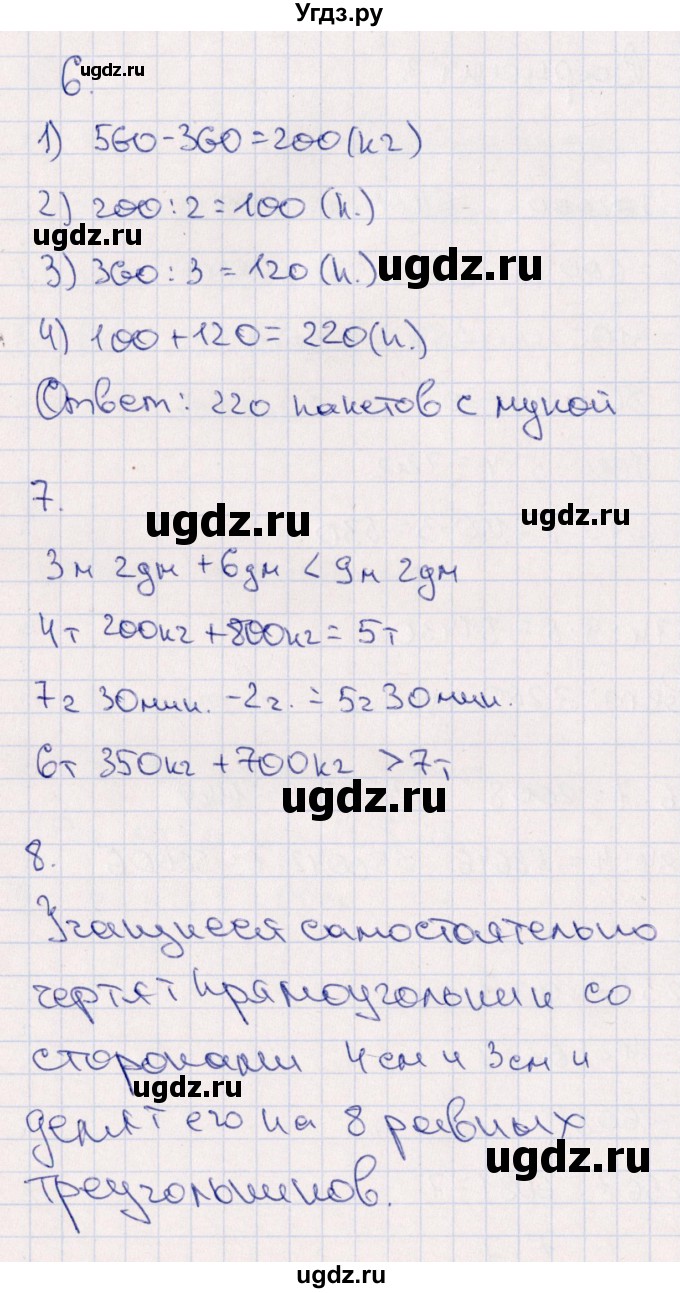 Угдз.ру
ugdz.ru
6.
1) 560-360=200(кг)
2) 200:2=100 (п.)
ugdz.ru
3) 360:3=120(п.) ugdz.ru
4) 100+120=220(п.)
Ответ: 220 пакетов с мукой
7.
ugdz.ru ugdz.ru
3м 2дм +6дм < 9м 2дм
4т 200кг+800кг=5т
7г 30мин. -2г. = 5г 30мин.
6т 350кг +700кг >7т
ugdz.ru
8.
Учащиеся самостоятельно
чертят прямоугольник со
сторонами 4см и 3см и
ugdz.ru
делят его на 8 равных
ugdz.ru
треугольников.
ugdz.ru